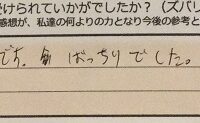 けられていかがでしたか?(ズバリ
感想が、私達の何よりの力となり今後の参考と
です。 ばっちりでした。